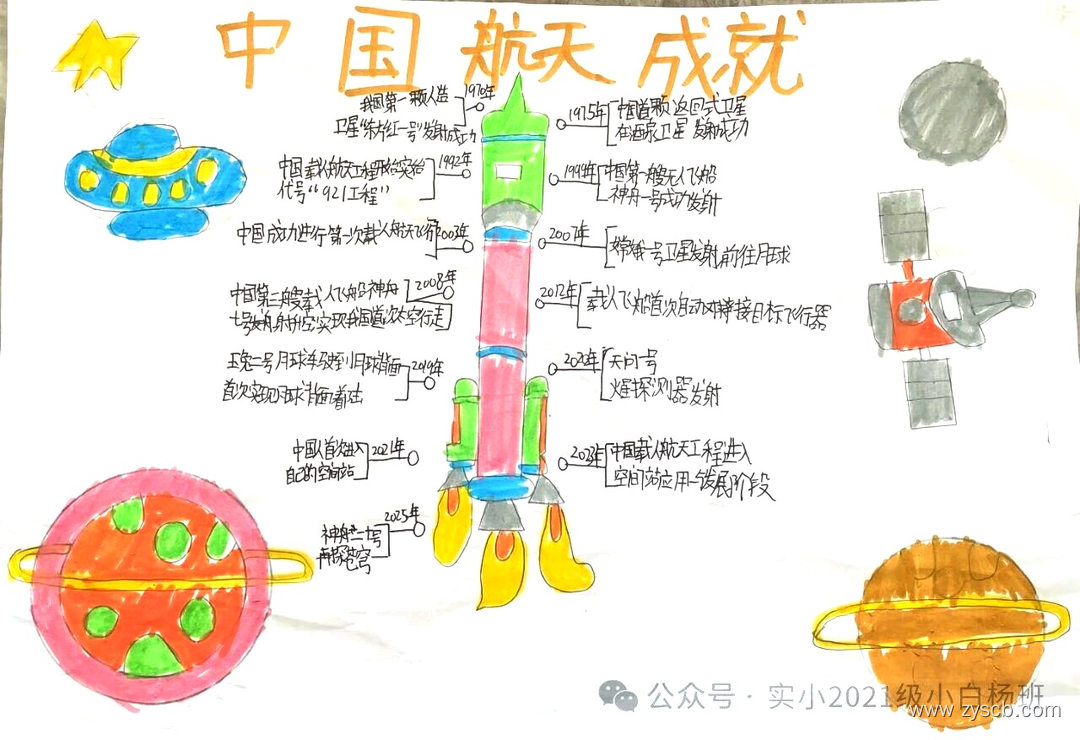 中国航天成就
1970年
我国第一颗人造
卫星"东方红一号"发射成功
1975年
中国首颗返回式卫星
在酒泉卫星发射成功
1992年
中国载人航天工程开始实施
代号"921工程"
1999年
中国第一艘无人飞船
神舟一号成功发射
2003年
中国成功进行第一次载人航天飞行
2007年
嫦娥一号卫星发射前往月球
2008年
中国第三艘载人飞船神舟
七号发射升空实现我国首次太空行走
2012年
载人飞船首次自动对接目标飞行器
2019年
玉兔二号月球车驶到月球背面
首次实现月球背面着陆
2020年
天问一号
火星探测器发射
2021年
中国人首次进入
自己的空间站
2023年
中国载人航天工程进入
空间站应用与发展阶段
2025年
神舟二十号
再探苍穹
公众号·实小2021级小白杨班
www.zyscb.com